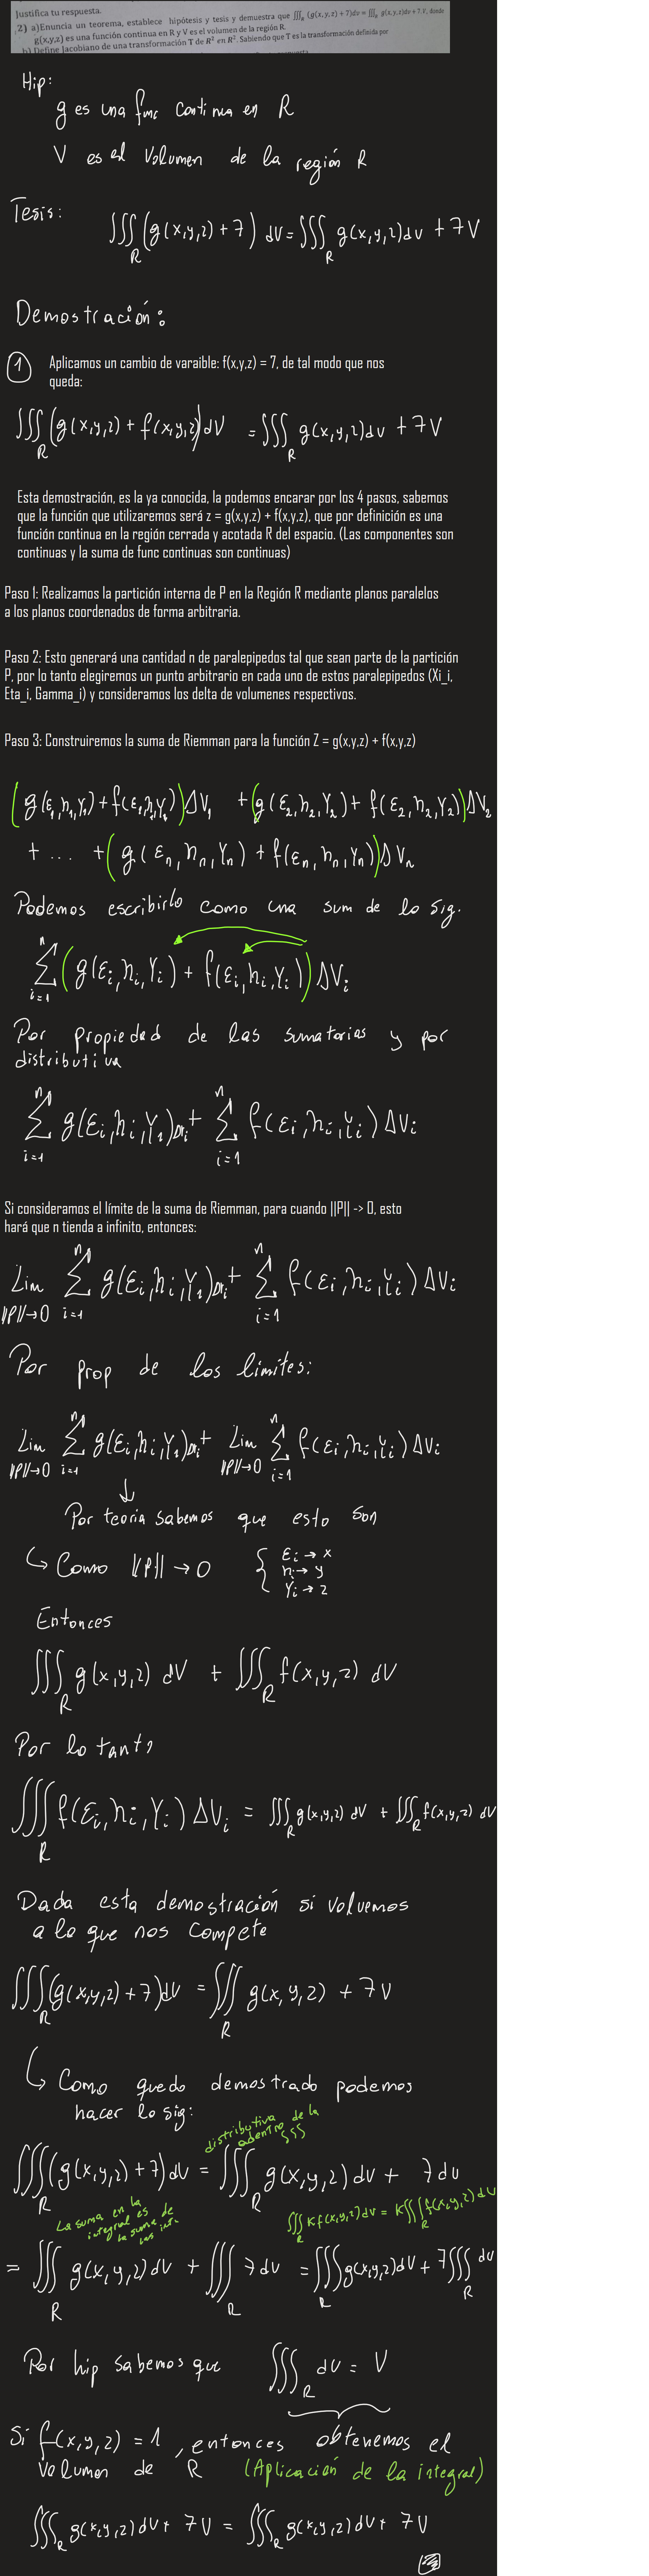 Justifica tu respuesta.
2) a)Enuncia un teorema, establece hipótesis y tesis y demuestra que ∭_R (g(x,y,z) + 7)dv = ∭_R g(x,y,z)dv + 7 V, donde
g(x,y,z) es una función continua en R y V es el volumen de la región R.
b) Define Jacobiano de una transformación T de R² en R². Sabiendo que T es la transformación definida por
Hip:
g es una func continua en R
V es el Volumen de la región R
Tesis: ∭_R (g(x,y,z) + 7) dv = ∭_R g(x,y,z)dv + 7V
Demostración:
1 Aplicamos un cambio de varaible: f(x,y,z) = 7, de tal modo que nos
queda:
∭_R (g(x,y,z) + f(x,y,z))dV = ∭_R g(x,y,z)dv + 7V
Esta demostración, es la ya conocida, la podemos encarar por los 4 pasos, sabemos
que la función que utilizaremos será z = g(x,y,z) + f(x,y,z), que por definición es una
función continua en la región cerrada y acotada R del espacio. (Las componentes son
continuas y la suma de func continuas son continuas)
Paso 1: Realizamos la partición interna de P en la Región R mediante planos paralelos
a los planos coordenados de forma arbitraria.
Paso 2: Esto generará una cantidad n de paralepipedos tal que sean parte de la partición
P, por lo tanto elegiremos un punto arbitrario en cada uno de estos paralepipedos (Xi_i,
Eta_i, Gamma_i) y consideramos los delta de volumenes respectivos.
Paso 3: Construiremos la suma de Riemman para la función Z = g(x,y,z) + f(x,y,z)
(g(ε₁,η₁,γ₁) + f(ε₁,η₁,γ₁))ΔV₁ + (g(ε₂,η₂,γ₂) + f(ε₂,η₂,γ₂))ΔV₂
+ ... + (g(εₙ,ηₙ,γₙ) + f(εₙ,ηₙ,γₙ))ΔVₙ
Podemos escribirlo como una sum de lo sig.
n
∑ (g(εᵢ,ηᵢ,γᵢ) + f(εᵢ,ηᵢ,γᵢ))ΔVᵢ
i=1
Por propiedad de las sumatorias y por
distributiva
n n
∑ g(εᵢ,ηᵢ,γᵢ)Δvᵢ + ∑ f(εᵢ,ηᵢ,γᵢ)ΔVᵢ
i=1 i=1
Si consideramos el límite de la suma de Riemman, para cuando ||P|| -> 0, esto
hará que n tienda a infinito, entonces:
n n
Lim ∑ g(εᵢ,ηᵢ,γᵢ)Δvᵢ + ∑ f(εᵢ,ηᵢ,γᵢ)ΔVᵢ
||P||→0 i=1 i=1
Por prop de los límites:
n n
Lim ∑ g(εᵢ,ηᵢ,γᵢ)Δvᵢ + Lim ∑ f(εᵢ,ηᵢ,γᵢ)ΔVᵢ
||P||→0 i=1 ||P||→0 i=1
↓
Por teoría sabemos que esto son
↳ Como ||P|| → 0 { εᵢ → x
ηᵢ → y
γᵢ → z
Entonces
∭_R g(x,y,z) dV + ∭_R f(x,y,z) dV
Por lo tanto
∭_R f(εᵢ,ηᵢ,γᵢ)ΔVᵢ = ∭_R g(x,y,z) dV + ∭_R f(x,y,z) dV
Dada esta demostración si volvemos
a lo que nos compete
∭_R (g(x,y,z) + 7)dV = ∭_R g(x,y,z) + 7V
↳ Como quedo demostrado podemos
hacer lo sig:
distributiva de la
adentro ∭
∭_R (g(x,y,z) + 7)dV = ∭_R g(x,y,z)dv + 7dv
La suma en la
integral es
la suma de
las int.
∭_R K f(x,y,z)dv = K∭_R f(x,y,z)dv
= ∭_R g(x,y,z)dv + ∭_R 7dv = ∭_R g(x,y,z)dv + 7∭_R dv
Por hip sabemos que ∭_R dv = V
Si f(x,y,z) = 1, entonces obtenemos el
volumen de R (Aplicación de la integral)
∭_R g(x,y,z)dv + 7V = ∭_R g(x,y,z)dv + 7V